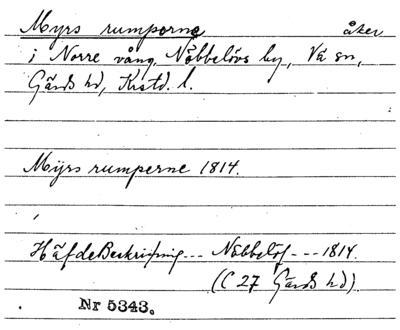 Myrs rumporne åker
i Norre vång, Nöbbelövs by, Vä sn,
Gärds hd, Krstd. l.
Mÿrs rumperne 1814.
HäfdeBeskrifning --- Nöbbelöf --- 1814.
(C 27 Gärds hd)
Nr 5343.